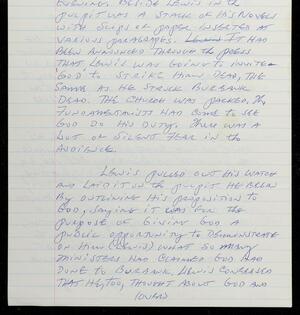 EVENING. BESIDE LEWIS IN THE
PULPIT WAS A STACK OF HIS NOVELS
WITH SLIPS OF PAPER INSERTED AT
VARIOUS PARAGRAPHS. IT HAD
BEEN ANNOUNCED THROUGH THE PRESS
THAT LEWIS WAS GOING TO INVITE
GOD TO STRIKE HIM DEAD, THE
SAME AS HE STRUCK BURBANK
DEAD. THE CHURCH WAS PACKED. THE
FUNDAMENTALISTS HAD COME TO SEE
GOD DO HIS DUTY. THERE WAS A
LOT OF SILENT FEAR IN THE
AUDIENCE.
LEWIS PULLED OUT HIS WATCH
AND LAID IT ON THE PULPIT. HE BEGAN
BY OUTLINING HIS PROPOSITION TO
GOD, SAYING IT WAS FOR THE
PURPOSE OF GIVING GOD A
PUBLIC OPPORTUNITY TO DEMONSTRATE
ON HIM (LEWIS) WHAT SO MANY
MINISTERS HAD CLAIMED GOD HAD
DONE TO BURBANK. LEWIS CONFESSED
THAT HE, TOO, THOUGHT ABOUT GOD AND
(OVER)